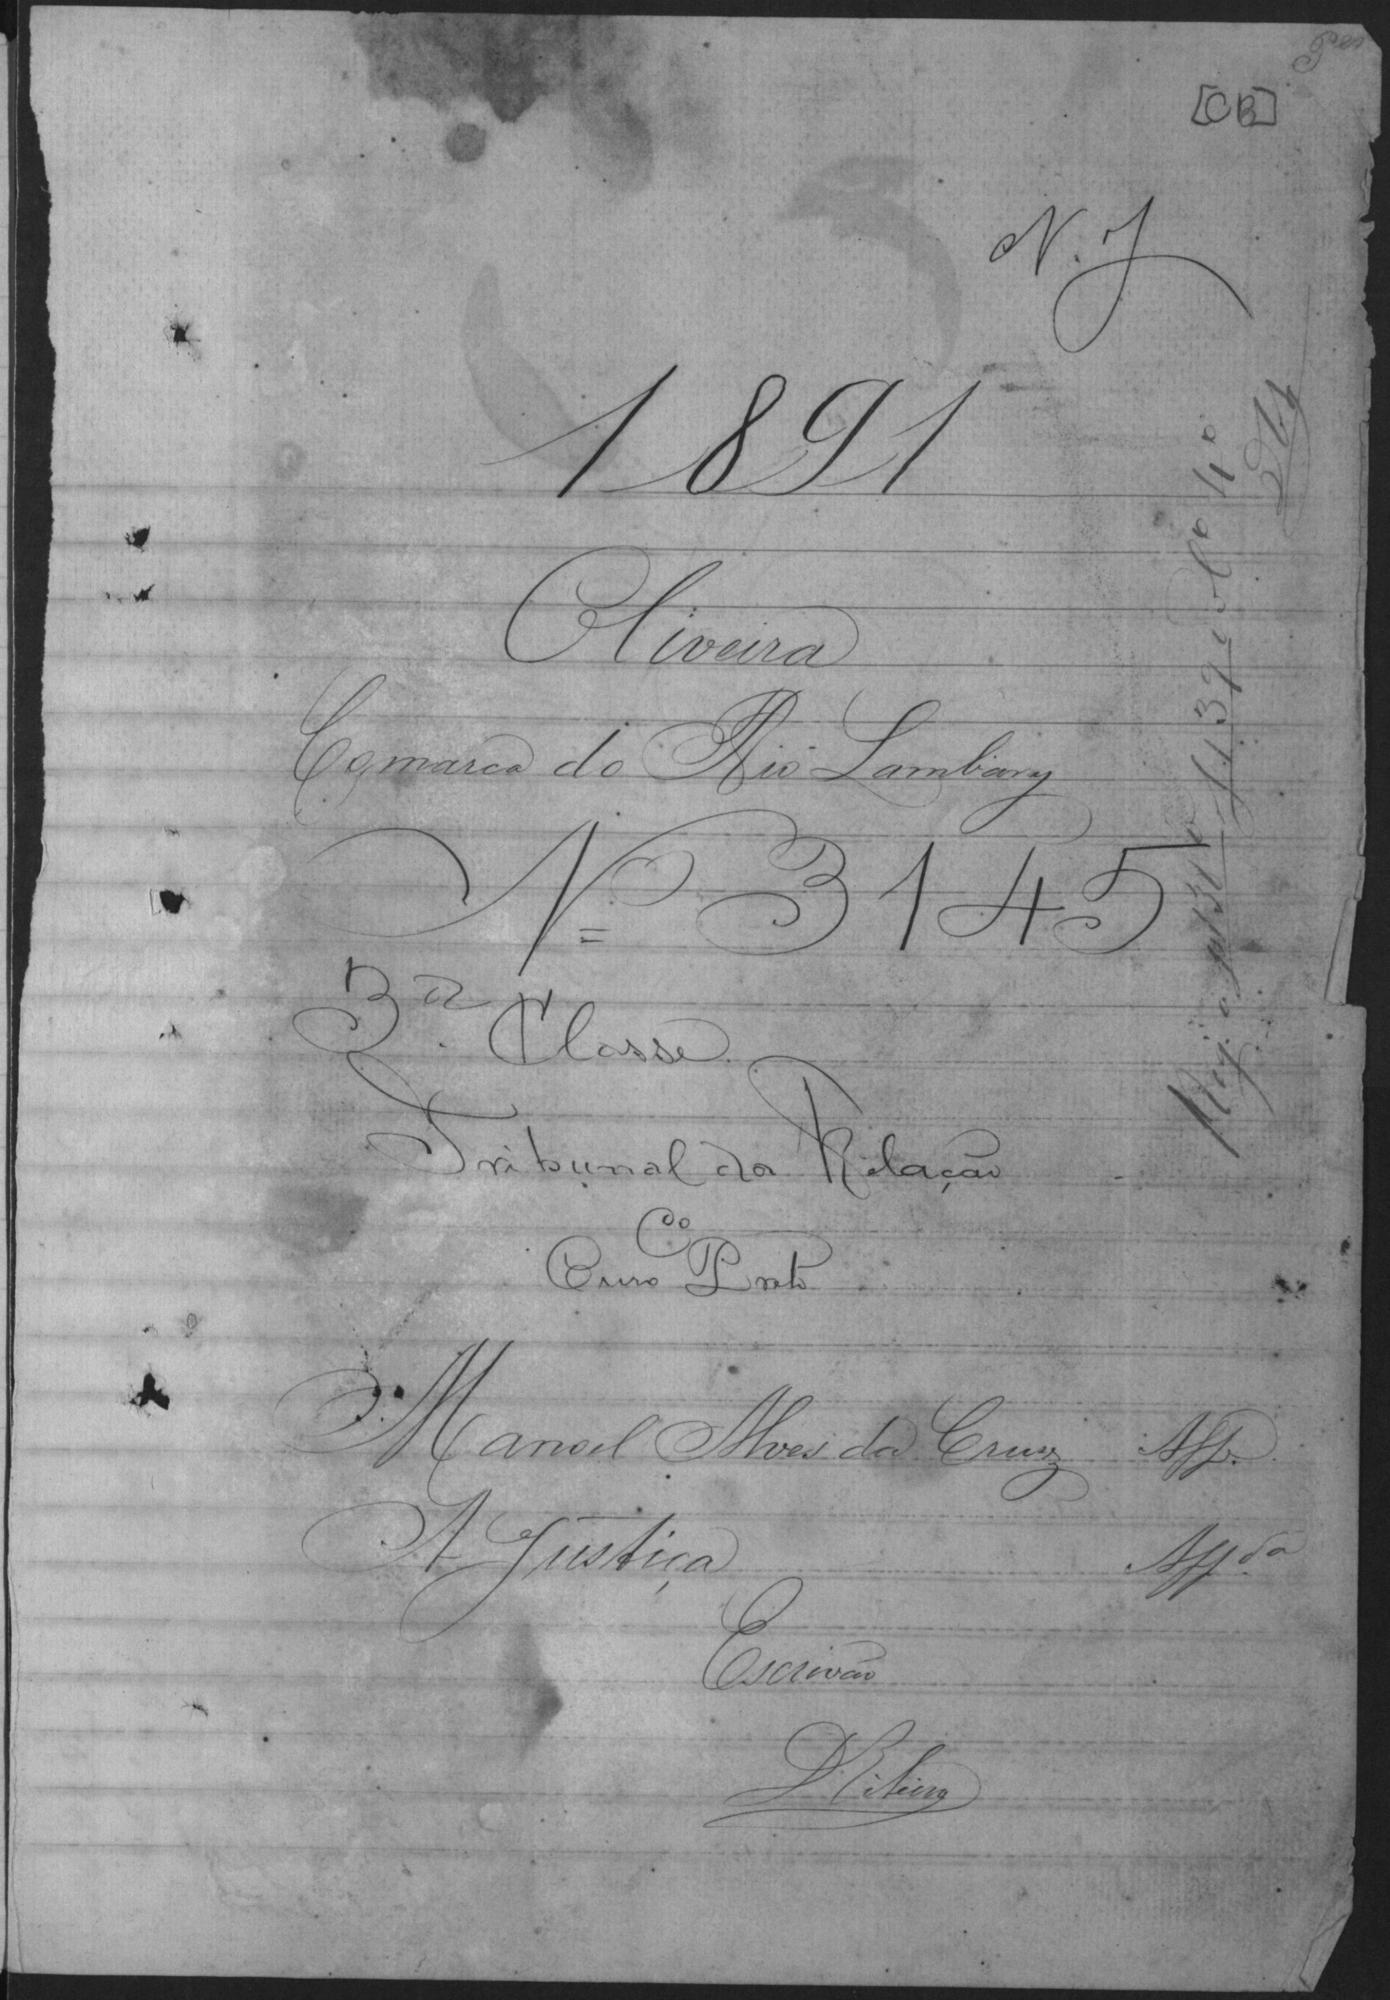 [CB]
N. J
1891
Oliveira
Comarca do Rio Lambary
Nº 3145
3ª Classe
Tribunal da Relação
do
Ouro Preto
Manoel Alves da Cruz App.
A Justiça App.da
Escrivão
DRibeiro